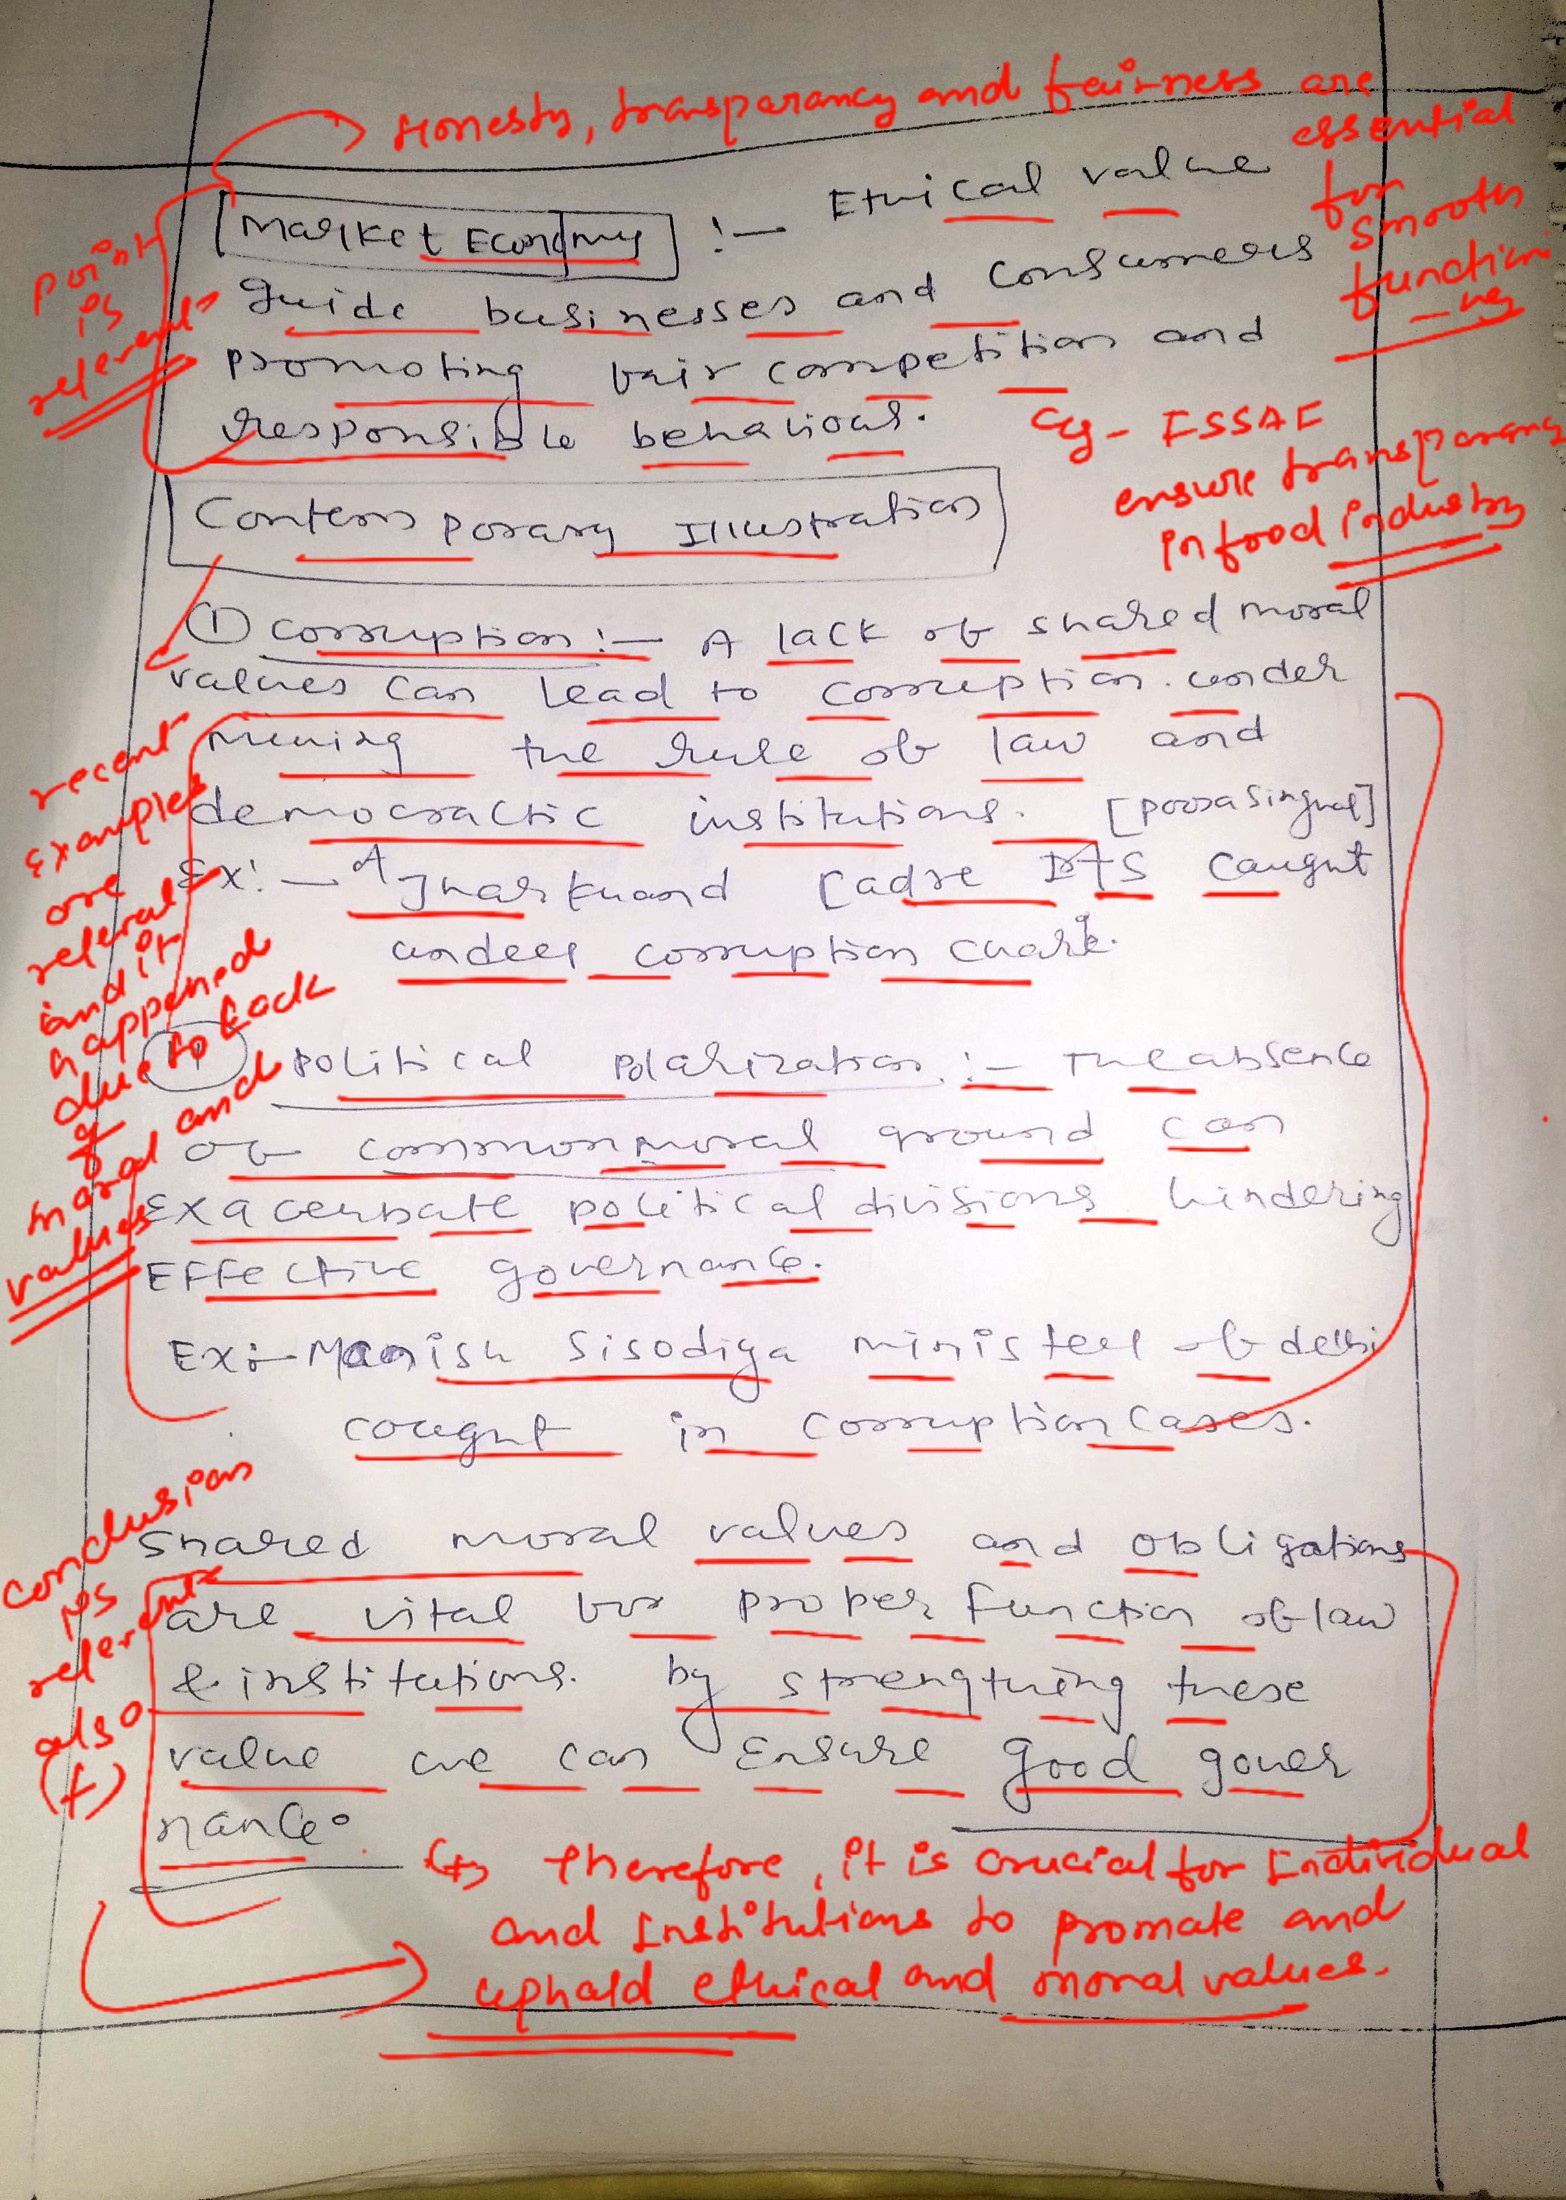 Honesty, transparancy and fairness are
essential
for
smooth
function
-ing
Market Economy :- Ethical value
guide businesses and consumers
promoting fair competition and
responsible behaviour.
point
is
relevant
eg - FSSAI
ensure transparancy
in food industry
Contemporary Illustration
① Corruption :- A lack of shared moral
values can lead to corruption under
mining the rule of law and
democractic institutions. [Pooja Singhal]
Ex:- A Jharkhand Cadre IAS caught
under corruption charge.
recent
examples
are
and it
happened
due to lack
of
moral and
values
Political Polarization :- The absence
of common moral ground can
exacerbate political divisions hindering
Effective governance.
Ex:- Manish Sisodiya minister of delhi
caught in corruption cases.
Shared moral values and obligations
are vital for proper function of law
& institutions. by strengthing these
value we can ensure good gover
nance.
conclusion
is
relevant
also
(+)
Therefore, it is crucial for Individual
and Institutions to promote and
uphold ethical and moral values.